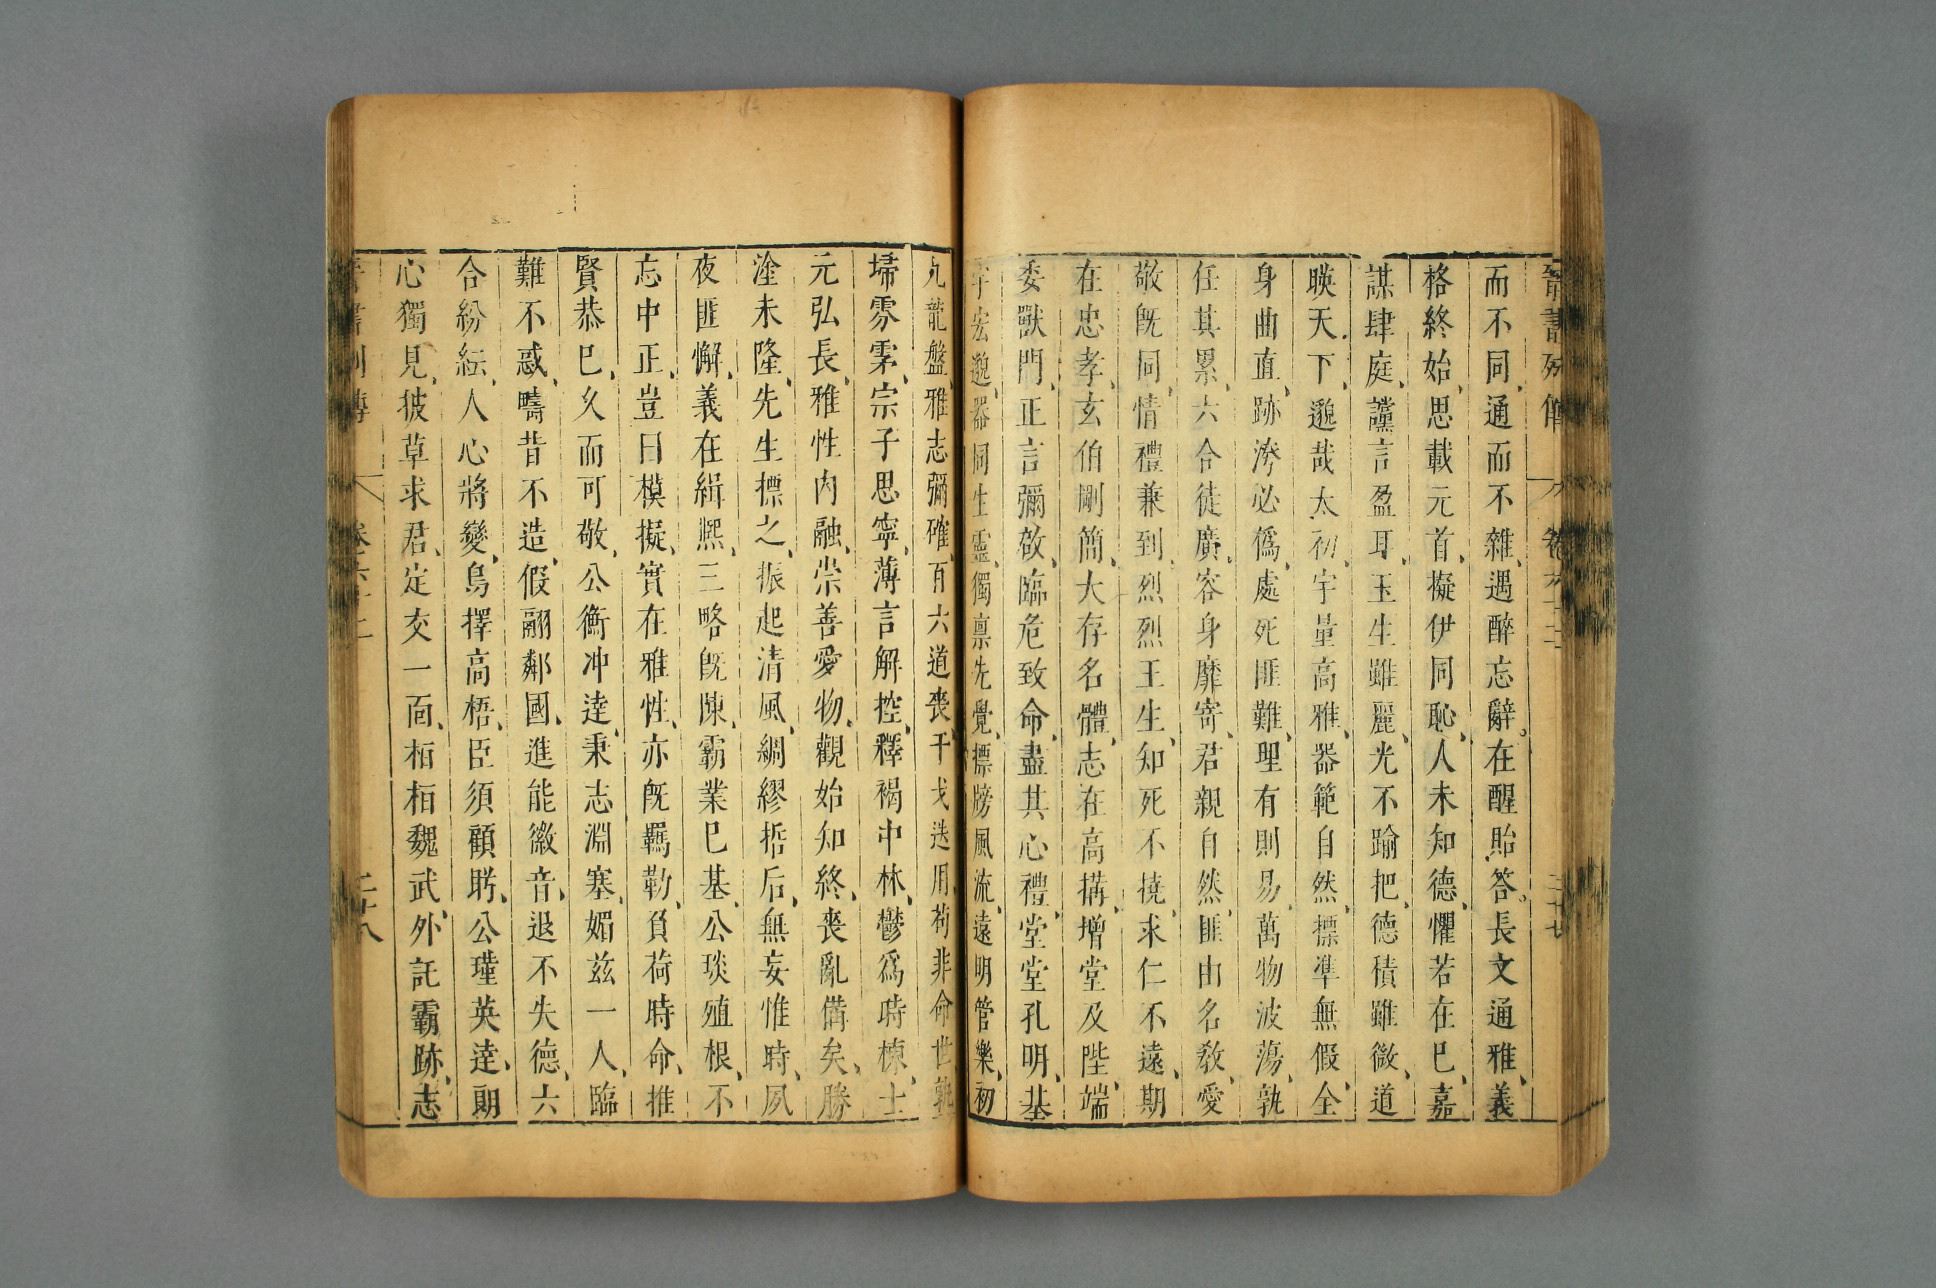 晉書列傳 卷六十二 二十七
而不同、通而不雜、遇醉忘辭。在醒貽答。長文通雅、義
格終始、思載元首、擬伊同恥、人未知德、懼若在已、嘉
謀肆庭、讜言盈耳、玉生雖麗、光不踰把、德積雖微、道
暎天下、邈哉太初、宇量高雅、器範自然、標準無假、全
身曲直、跡洿必僞、處死匪難、理有則易、萬物波蕩、孰
任其累、六合徒廣、容身靡寄、君親自然、匪由名教、愛
敬旣同、情禮兼到、烈烈王生、知死不撓、求仁不遠、期
在忠孝、玄伯剛簡、大存名體、志在高搆、增堂及陛、端
委獸門、正言彌啟、臨危致命、盡其心禮、堂堂孔明、基
宇宏邈、器同生靈、獨稟先覺、標牓風流、遠明管樂、初
九龍盤、雅志彌確、百六道喪、干戈迭用、苟非命世、孰
埽雰雺、宗子思寧、薄言解控、釋褐中林、鬱爲時棟、士
元弘長、雅性內融、崇善愛物、觀始知終、喪亂備矣、勝
塗未隆、先生標之、振起清風、綢繆哲后、無妄惟時、夙
夜匪懈、義在緝熙、三略旣陳、霸業已基、公琰殖根、不
忘中正、豈曰模擬、實在雅性、亦旣羈勒、負荷時命、推
賢恭已、久而可敬、公衡冲達、秉志淵塞、媚茲一人、臨
難不惑、疇昔不造、假翮鄰國、進能徽音、退不失德、六
合紛紜、人心將變、鳥擇高梧、臣須顧眄、公瑾英達、朗
心獨見、披草求君、定交一面、桓桓魏武、外託霸跡、志
晉書列傳 卷六十二 二十八